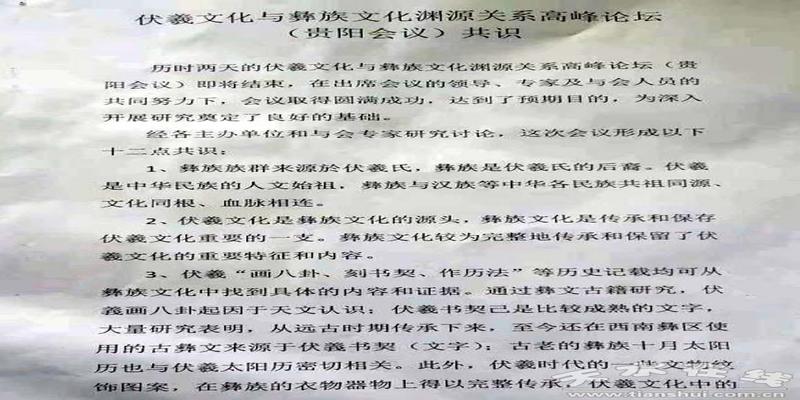 伏羲文化与彝族文化渊源关系高峰论坛
（贵阳会议）共识
历时两天的伏羲文化与彝族文化渊源关系高峰论坛（贵
阳会议）即将结束，在出席会议的领导、专家及与会人员的
共同努力下，会议取得圆满成功，达到了预期目的，为深入
开展研究奠定了良好的基础。
经各主办单位和与会专家研究讨论，这次会议形成以下
十二点共识：
1、彝族族群来源於伏羲氏，彝族是伏羲氏的后裔。伏羲
是中华民族的人文始祖，彝族与汉族等中华各民族共祖同源、
文化同根、血脉相连。
2、伏羲文化是彝族文化的源头，彝族文化是传承和保存
伏羲文化重要的一支。彝族文化较为完整地传承和保留了伏
羲文化的重要特征和内容。
3、伏羲“画八卦、刻书契、作历法”等历史记载均可从
彝族文化中找到具体的内容和证据。通过彝文古籍研究，伏
羲画八卦起因于天文认识；伏羲书契已是比较成熟的文字，
大量研究表明，从远古时期传承下来，至今还在西南彝区使
用的古彝文来源于伏羲书契（文字）；古老的彝族十月太阳
历也与伏羲太阳历密切相关。此外，伏羲时代的一些文物纹
饰图案，在彝族的衣物器物上得以完整传承，伏羲文化中的
天水在线
www.tianshui.com.cn